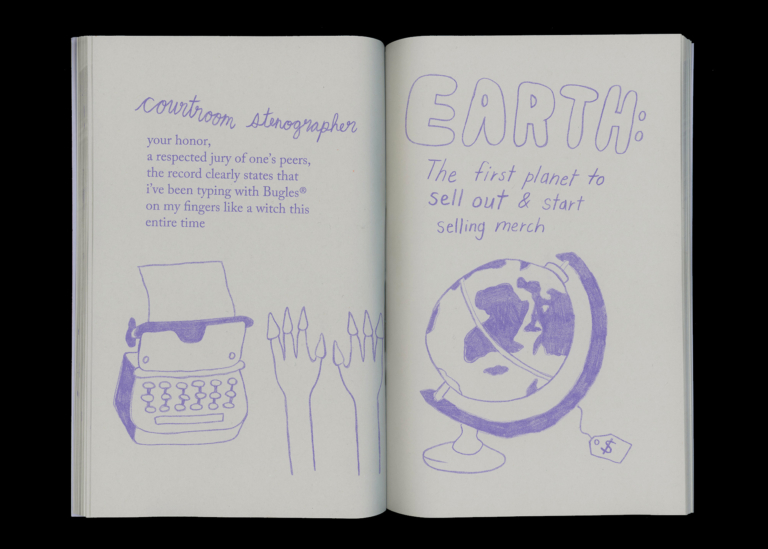 courtroom stenographer
your honor,
a respected jury of one's peers,
the record clearly states that
i've been typing with Bugles®
on my fingers like a witch this
entire time
EARTH:
The first planet to
sell out & start
selling merch
$